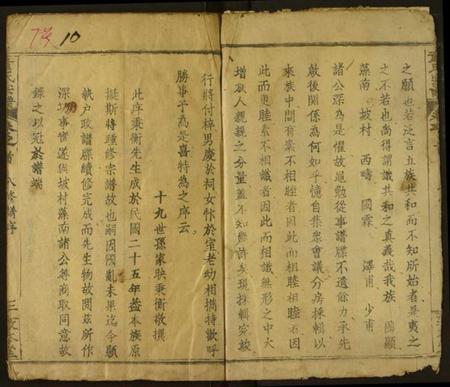 之願也若泛言五族共和而不知所始者是夷之
之不若也尚得謂識共和之真義哉我族 國順
藻南 坡村 西疇 國霖 澤甫 少甫
諸公深為是懼故恿勉從事譜牒不遺餘力承先
啟後關係為何如乎憶自集眾會議分房採輯以
來族中間有素不相睦者因此而相睦相睦者因
此而更睦素不相識者因此而相識無形之中大
增族人親親之分量蓋不知幾許矣現採輯完竣
行將付梓男慶於祠女忭於室老幼相攜持歡呼
勝事予為是喜特為之序云
十九世孫家映秉衡敬撰
此序秉衡先生成於民國二十五年蓋本族原
擬斯時踵修宗譜故也嗣因國亂未果迄今願
執戶政譜牒續修完成而先生物故閱茲所作
深切事實遂與坡村藻南諸公等商取同意故
錄之以冠於譜端
首 八修譜序
三
10